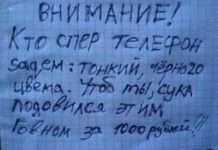 ВНИМАНИЕ!
Кто спер телефон
задем: тонкий, чёрного
цвета. Чтоб ты, сука
подовился этим
говном за 1000 рублей!!!